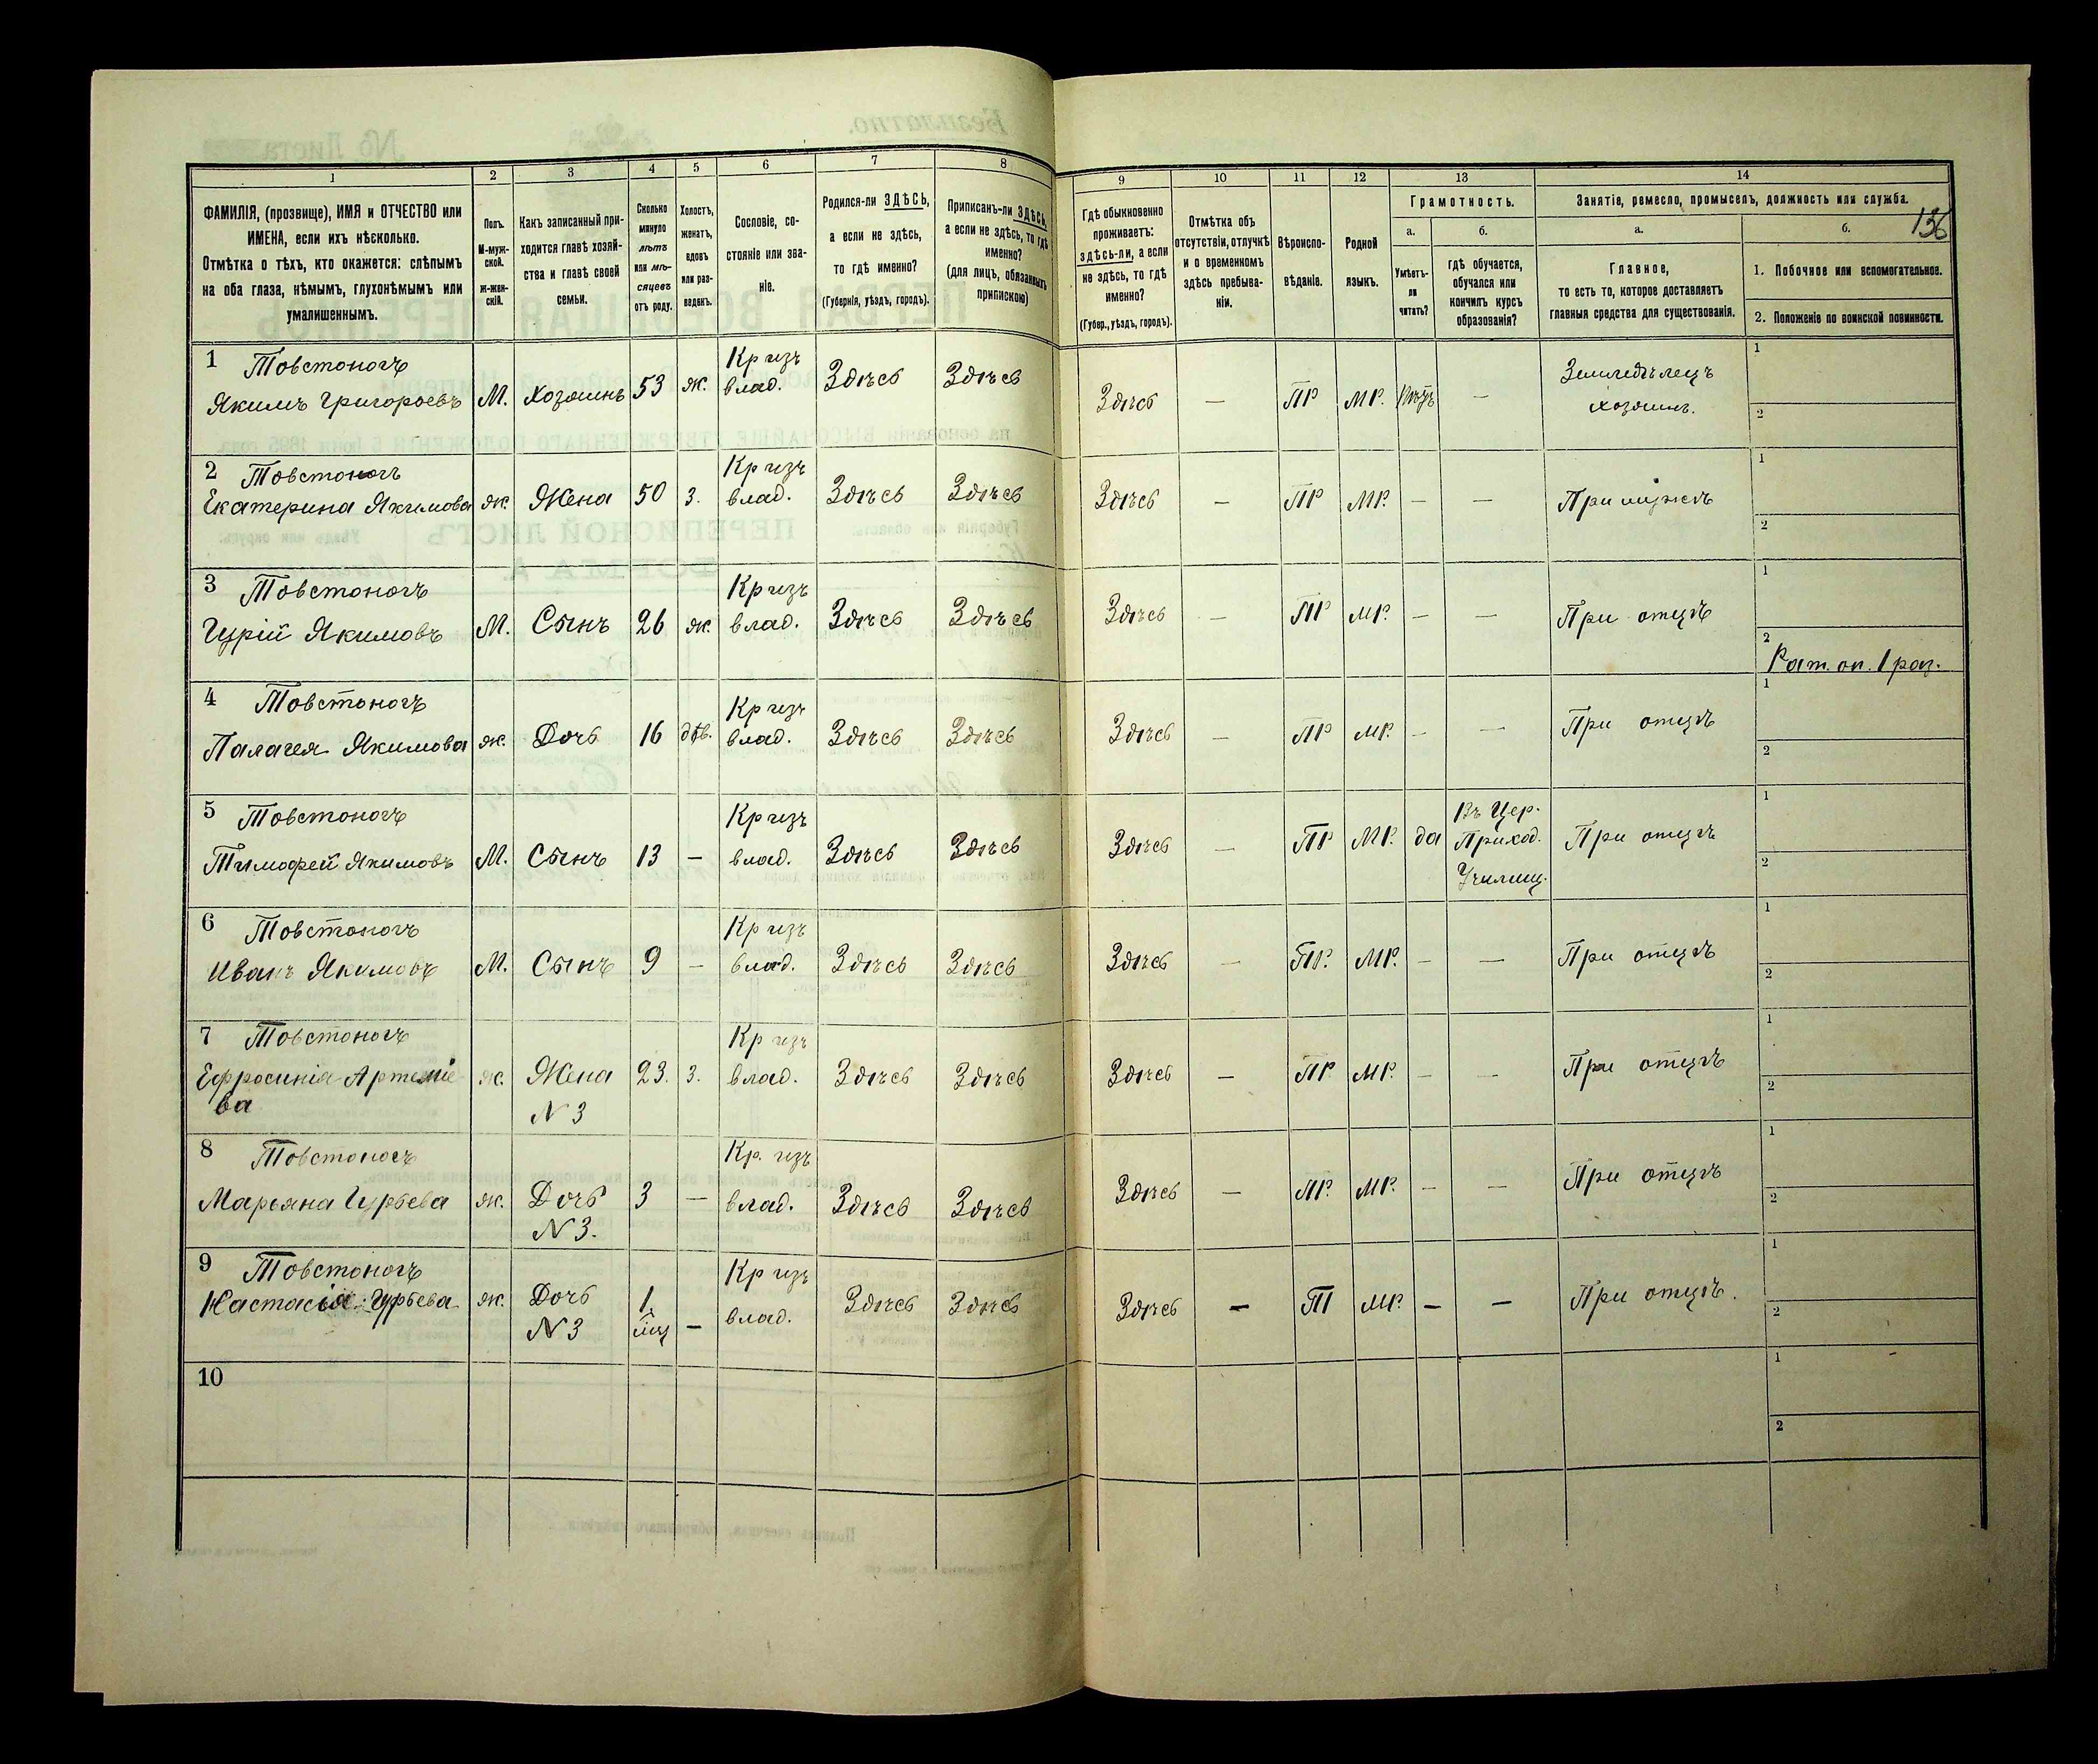 136
1 2 3 4 5 6 7 8 9 10 11 12 13 14
ФАМИЛІЯ, (прозвище), ИМЯ и ОТЧЕСТВО или
ИМЕНА, если ихъ нѣсколько.
Отмѣтка о тѣхъ, кто окажется: слѣпымъ
на оба глаза, нѣмымъ, глухонѣмымъ или
умалишеннымъ.
Полъ.
М-муж-
ской.
Ж-жен-
скій.
Какъ записанный при-
ходится главѣ хозяй-
ства и главѣ своей
семьи.
Сколько
минуло
лѣтъ
или мѣ-
сяцевъ
отъ роду.
Холостъ,
женатъ,
вдовъ
или раз-
веденъ.
Сословіе, со-
стояніе или зва-
ніе.
Родился-ли ЗДѢСЬ,
а если не здѣсь,
то гдѣ именно?
(Губернія, уѣздъ, городъ).
Приписанъ-ли ЗДѢСЬ,
а если не здѣсь, то гдѣ
именно?
(для лицъ, обязанныхъ
припискою)
Гдѣ обыкновенно
проживаетъ:
здѣсь-ли, а если
не здѣсь, то гдѣ
именно?
(Губер., уѣздъ, городъ).
Отмѣтка объ
отсутствіи, отлучкѣ
и о временномъ
здѣсь пребыва-
ніи.
Вѣроиспо-
вѣданіе.
Родной
языкъ.
Грамотность.
а.
Умѣетъ-
ли
читать?
б.
гдѣ обучается,
обучался или
кончилъ курсъ
образованія?
Занятіе, ремесло, промыселъ, должность или служба.
а.
Главное,
то есть то, которое доставляетъ
главныя средства для существованія.
б.
1. Побочное или вспомогательное.
2. Положеніе по воинской повинности.
1 Товстоногъ Кр изъ 1
Якимъ Григорьевъ М. Хозяинъ 53 ж. влад. Здѣсь Здѣсь Здѣсь — ПР МР. — Земледѣлецъ
хозяинъ. 2
2 Товстоногъ Кр изъ 1
Екатерина Якимова ж. Жена 50 з. влад. Здѣсь Здѣсь Здѣсь — ПР МР. — — При мужѣ
2
3 Товстоногъ Кр изъ 1
Гурій Якимовъ М. Сынъ 26 ж. влад. Здѣсь Здѣсь Здѣсь — ПР МР. — — При отцѣ
2 Рат. оп. 1 раз.
4 Товстоногъ Кр изъ 1
Палагея Якимова ж. Дочь 16 дѣв. влад. Здѣсь Здѣсь Здѣсь — ПР МР. — — При отцѣ
2
5 Товстоногъ Кр изъ Въ Цер. 1
Тимофей Якимовъ М. Сынъ 13 — влад. Здѣсь Здѣсь Здѣсь — ПР МР. да Приход. При отцѣ
Училищ. 2
6 Товстоногъ Кр изъ 1
Иванъ Якимовъ М. Сынъ 9 — влад. Здѣсь Здѣсь Здѣсь — ПР. МР. — — При отцѣ
2
7 Товстоногъ Кр изъ 1
Ефросинія Артеміе ж. Жена 23. з. влад. Здѣсь Здѣсь Здѣсь — ПР. МР. — — При отцѣ
ва N 3 2
8 Товстоногъ Кр. изъ 1
Марьяна Гурьева ж. Дочь 3 — влад. Здѣсь Здѣсь Здѣсь — ПР. МР. — — При отцѣ
N 3. 2
9 Товстоногъ Кр изъ 1
Настасія Гурьева ж. Дочь 1 влад. Здѣсь Здѣсь Здѣсь — П МР. — — При отцѣ.
N 3 мц — 2
10 1
2